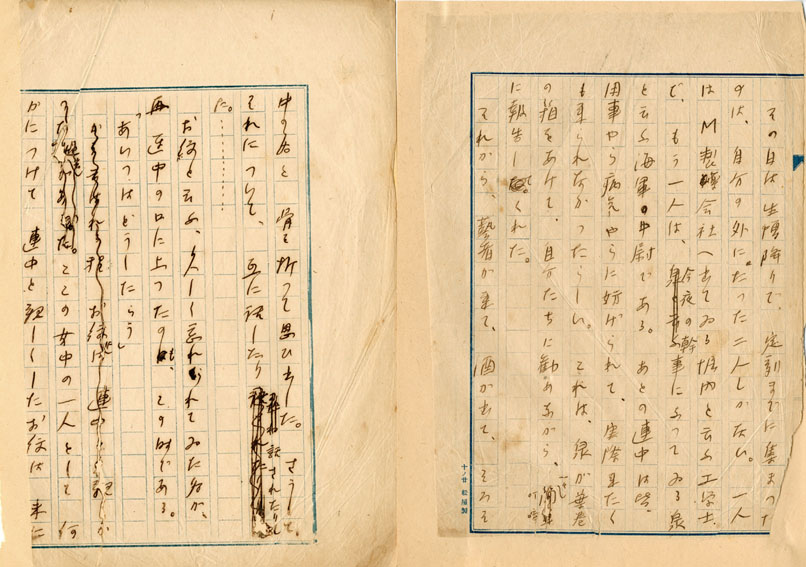 その日は 生憎降りで、定刻までに集まつた
のは、自分の外に、たつた二人しかない。一人
はM製 会社へ出てゐる堀内と云ふ工学士
で、もう一人は、今夜の幹事になつてゐる泉
と云ふ海軍中尉である。あとの連中は皆、
用事やら病気やらに妨げられて、実際来たく
も来られなかつたらしい。これは、泉が葉巻
の箱をあけて、自分たちに勧めながら、一々
に報告してくれた。
それから、藝者が来て、酒が出て、そろそ
十ノ廿 松屋製
中の名を 骨を折つて思ひ出した。さうして、
それについて、互に話したり 話されたりし
た。…………
お紋と云ふ、久しく忘れられてゐた名が、
再 連中の口に上つたのも、この時である。
「あいつはどうしたらう」
お紋は 連中
があつた。ここの女中の一人として 何
かにつけて 連中と親しくしたお紋は